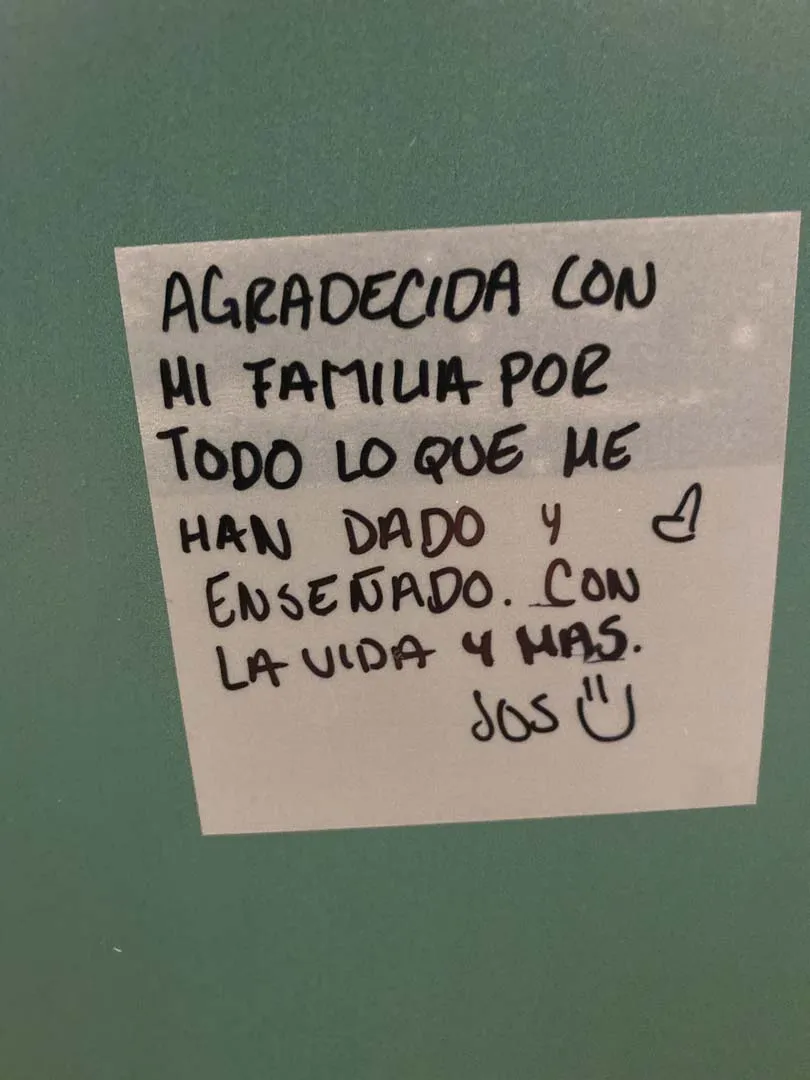 AGRADECIDA CON
MI FAMILIA POR
TODO LO QUE ME
HAN DADO Y
ENSEÑADO. CON
LA VIDA Y MAS.
JOS